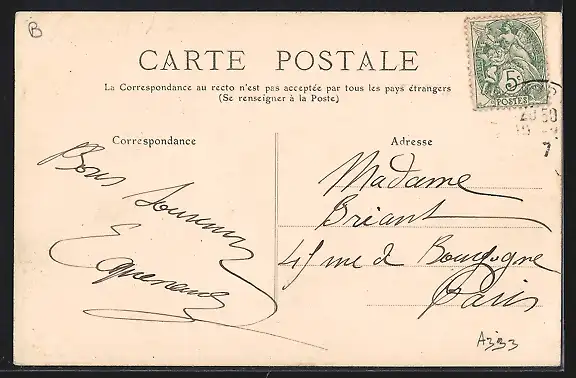 B
CARTE POSTALE
La Correspondance au recto n'est pas acceptée par tous les pays étrangers
(Se renseigner à la Poste)
5c
POSTES
Correspondance
Adresse
Bons Souvenirs
Madame
Briant
45 rue d Bourgogne
Paris
A333